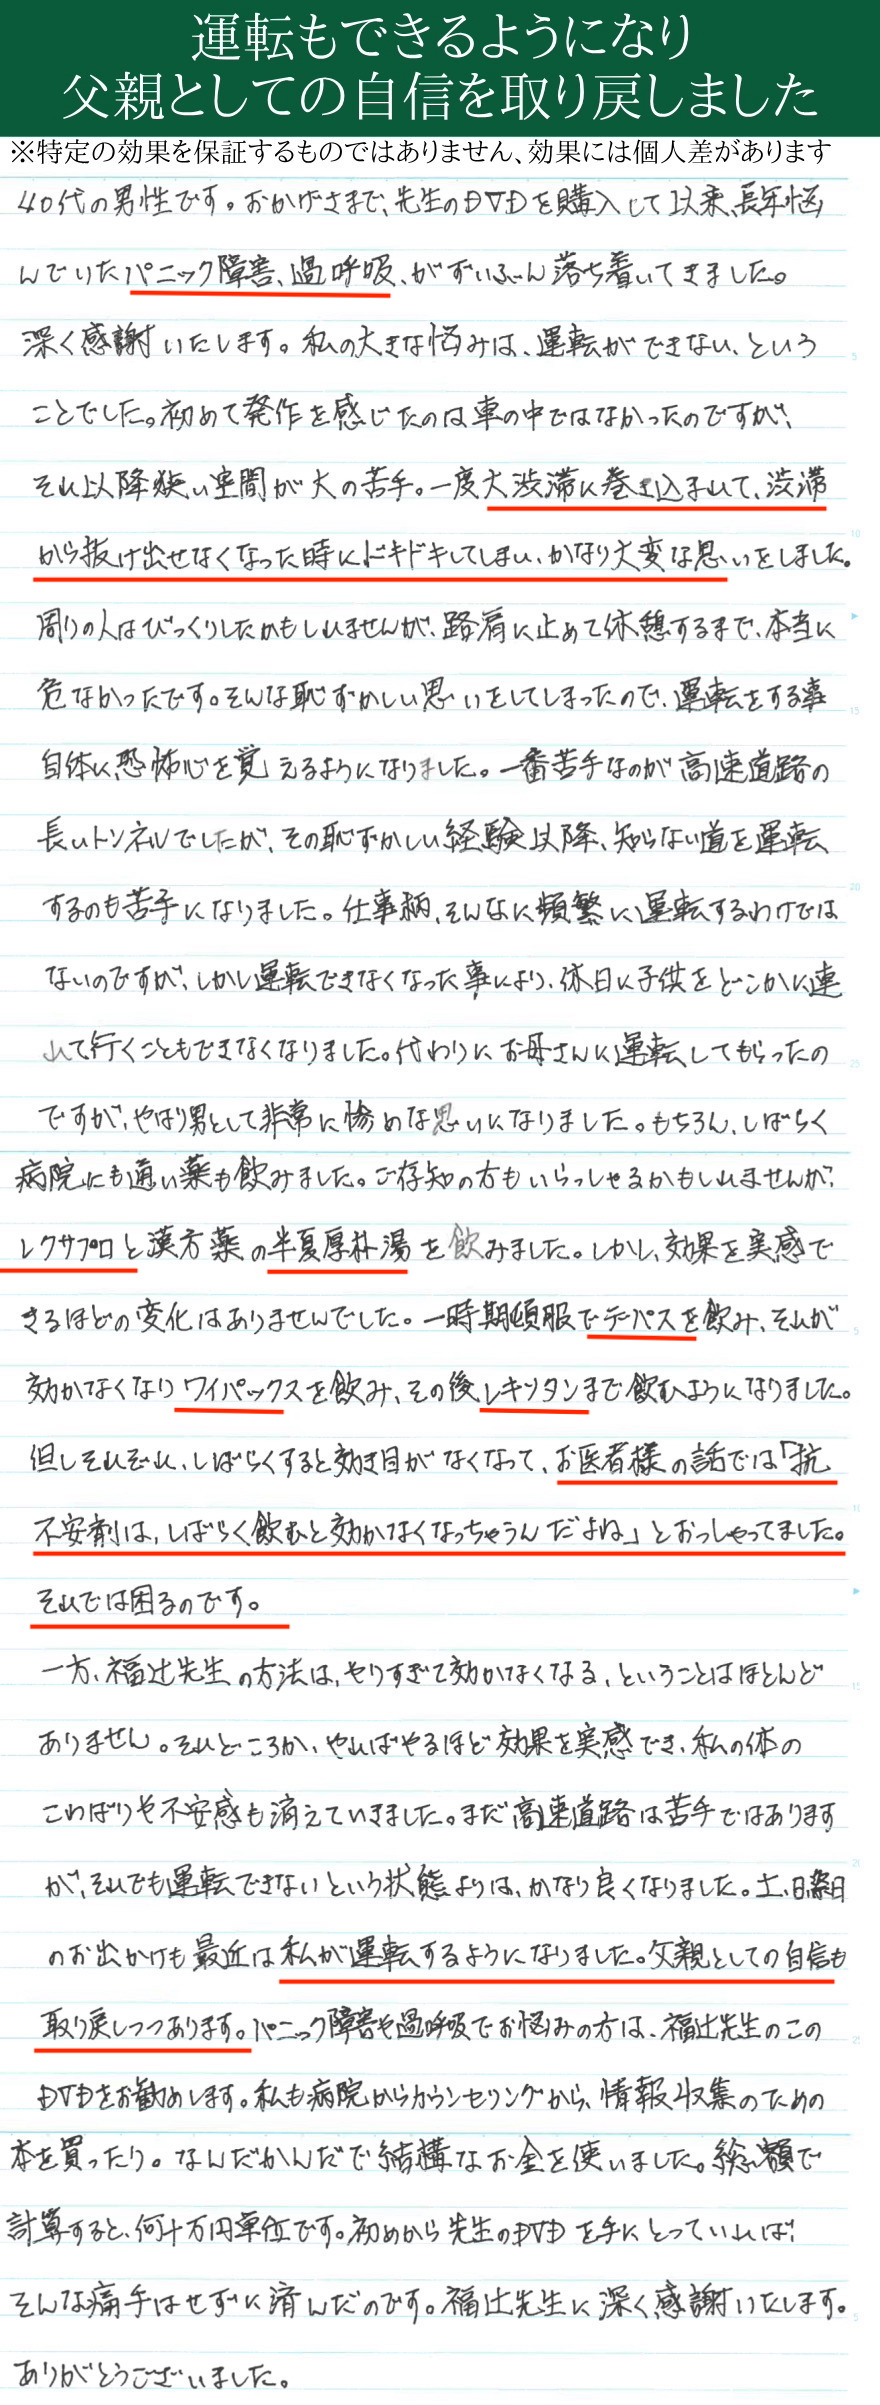 運転もできるようになり
父親としての自信を取り戻しました
※特定の効果を保証するものではありません、効果には個人差があります
40代の男性です。おかげさまで、先生のDVDを購入して以来、長年悩
んでいたパニック障害、過呼吸、がずいぶん落ち着いてきました。
深く感謝いたします。私の大きな悩みは、運転ができない、という
ことでした。初めて発作を感じたのは車の中ではなかったのですが、
それ以降狭い空間が大の苦手。一度大渋滞に巻き込まれて、渋滞
から抜け出せなくなった時にドキドキしてしまい、かなり大変な思いをしました。
周りの人はびっくりしたかもしれませんが、路肩に止めて休憩するまで、本当に
危なかったです。そんな恥ずかしい思いをしてしまったので、運転をする事
自体に恐怖心を覚えるようになりました。一番苦手なのが高速道路の
長いトンネルでしたが、その恥ずかしい経験以降、知らない道を運転
するのも苦手になりました。仕事柄、そんなに頻繁に運転するわけでは
ないのですが、しかし運転できなくなった事により、休日に子供をどこかに連
れて行くこともできなくなりました。代わりにお母さんに運転してもらったの
ですが、やはり男として非常に惨めな思いになりました。もちろん、しばらく
病院にも通い薬も飲みました。ご存知の方もいらっしゃるかもしれませんが、
レクサプロと漢方薬の半夏厚朴湯を飲みました。しかし、効果を実感で
きるほどの変化はありませんでした。一時期頓服でデパスを飲み、それが
効かなくなりワイパックスを飲み、その後レキソタンまで飲むようになりました。
但しそれぞれ、しばらくすると効き目がなくなって、お医者様の話では「抗
不安剤は、しばらく飲むと効かなくなっちゃうんだよね」とおっしゃってました。
それでは困るのです。
一方、福辻先生の方法は、やりすぎて効かなくなる、ということはほとんど
ありません。それどころか、やればやるほど効果を実感でき、私の体の
こわばりや不安感も消えていきました。まだ高速道路は苦手ではあります
が、それでも運転できないという状態よりは、かなり良くなりました。土、日祭日
のお出かけも最近は私が運転するようになりました。父親としての自信も
取り戻しつつあります。パニック障害や過呼吸でお悩みの方は、福辻先生のこの
DVDをお勧めします。私も病院からカウンセリングから、情報収集のための
本を買ったり。なんだかんだで結構なお金を使いました。総額で
計算すると、何十万円単位です。初めから先生のDVDを手にとっていれば、
そんな痛手はせずに済んだのです。福辻先生に深く感謝いたします。
ありがとうございました。